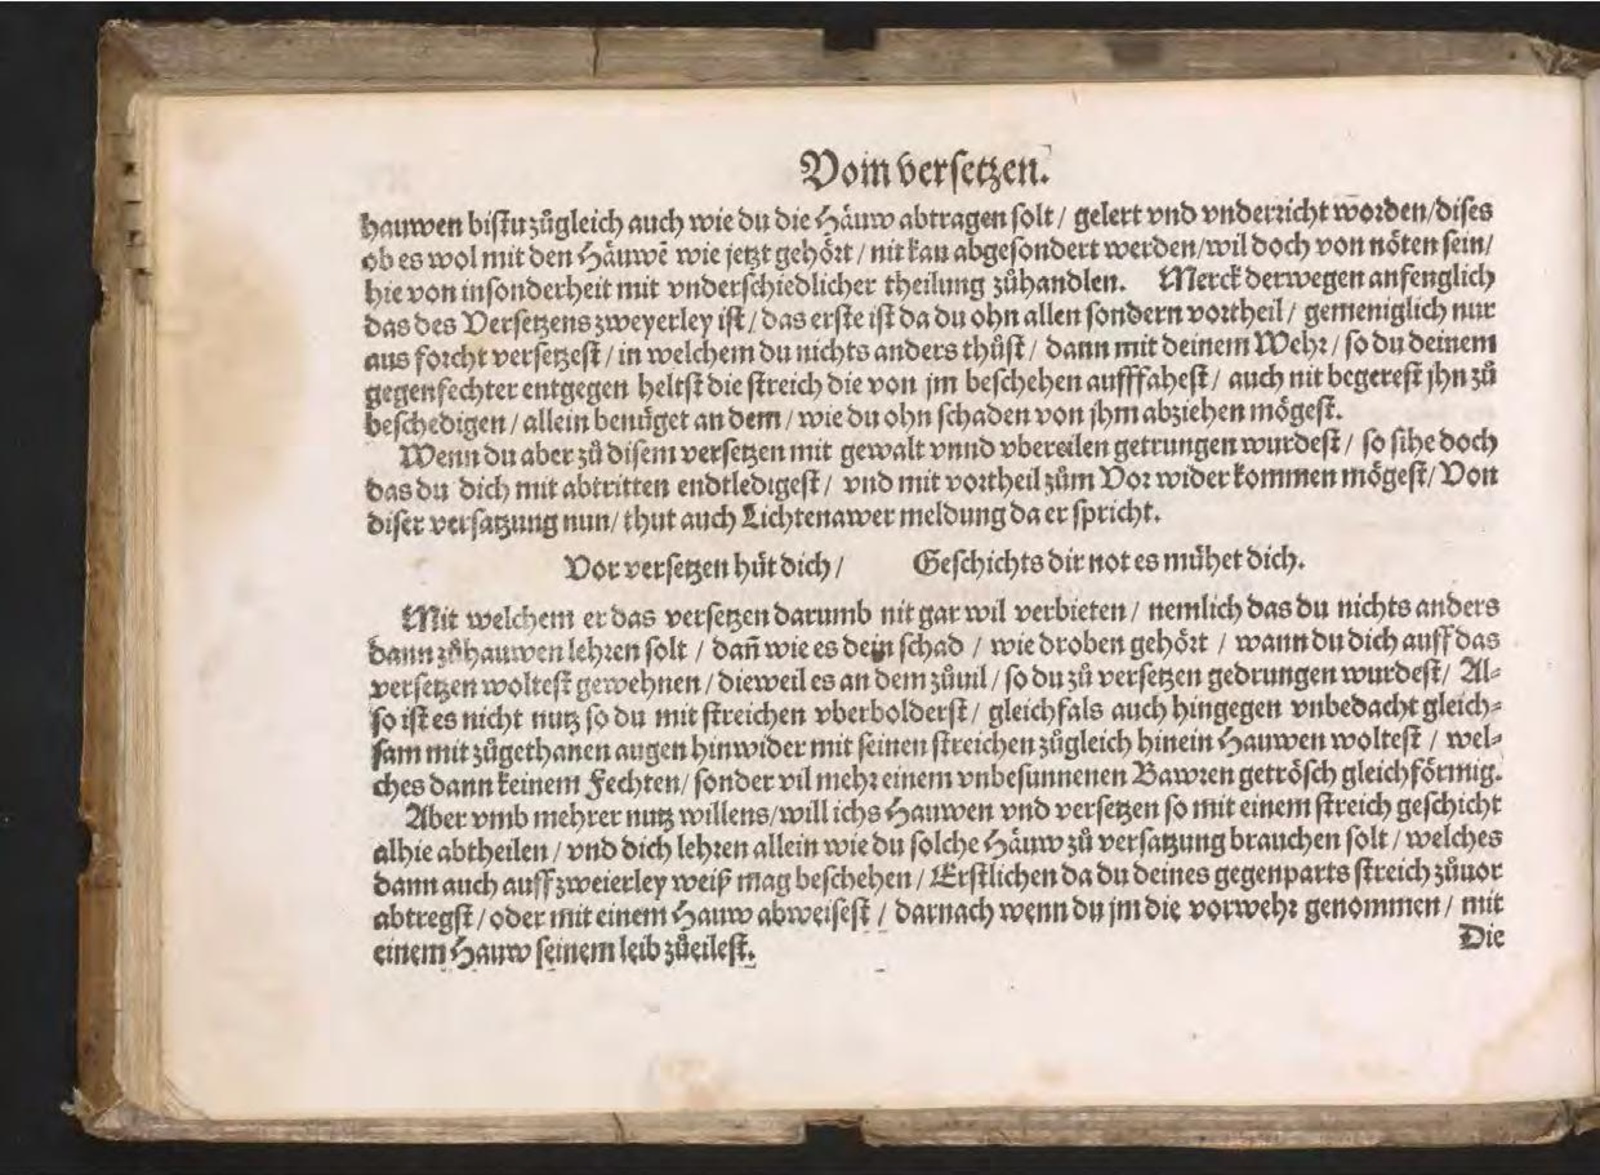 Vom versetzen.
hauwen bistu zůgleich auch wie du die Häuw abtragen solt / gelert vnd vnderricht worden/dises
ob es wol mit den Häuwē wie jetzt gehört / nit kan abgesondert werden/wil doch von nöten sein/
hie von insonderheit mit vnderschiedlicher theilung zůhandlen. Merck derwegen anfenglich
das des Versetzens zweyerley ist / das erste ist da du ohn allen sondern vortheil / gemeniglich nur
aus forcht versetzest / in welchem du nichts anders thůst / dann mit deinem Wehr / so du deinem
gegenfechter entgegen heltst die streich die von jm beschehen aufffahest / auch nit begerest jhn zů
beschedigen / allein benüget an dem / wie du ohn schaden von jhm abziehen mögest.
Wenn du aber zů disem versetzen mit gewalt vnnd vbereilen getrungen wurdest / so sihe doch
das du dich mit abtritten endtledigest / vnd mit vortheil zům Vor wider kommen mögest/ Von
diser versatzung nun/ thut auch Lichtenawer meldung da er spricht.
Vor versetzen hüt dich / Geschichts dir not es mühet dich.
Mit welchem er das versetzen darumb nit gar wil verbieten / nemlich das du nichts anders
dann zůhauwen lehren solt / dañ wie es dein schad / wie droben gehört / wann du dich auff das
versetzen woltest gewehnen / dieweil es an dem zůuil / so du zů versetzen gedrungen wurdest/ Al⸗
so ist es nicht nutz so du mit streichen vberbolderst / gleichfals auch hingegen vnbedacht gleich⸗
sam mit zůgethanen augen hinwider mit seinen streichen zůgleich hinein Hauwen woltest / wel⸗
ches dann keinem Fechten/ sonder vil mehr einem vnbesunnenen Bawren getrösch gleichförmig.
Aber vmb mehrer nutz willens/will ichs Hauwen vnd versetzen so mit einem streich geschicht
alhie abtheilen / vnd dich lehren allein wie du solche Häuw zů versatzung brauchen solt / welches
dann auch auff zweierley weiß mag beschehen / Erstlichen da du deines gegenparts streich zůuor
abtregst / oder mit einem Hauw abweisest / darnach wenn du jm die vorwehr genommen / mit
einem Hauw seinem leib zůeilest.
Die